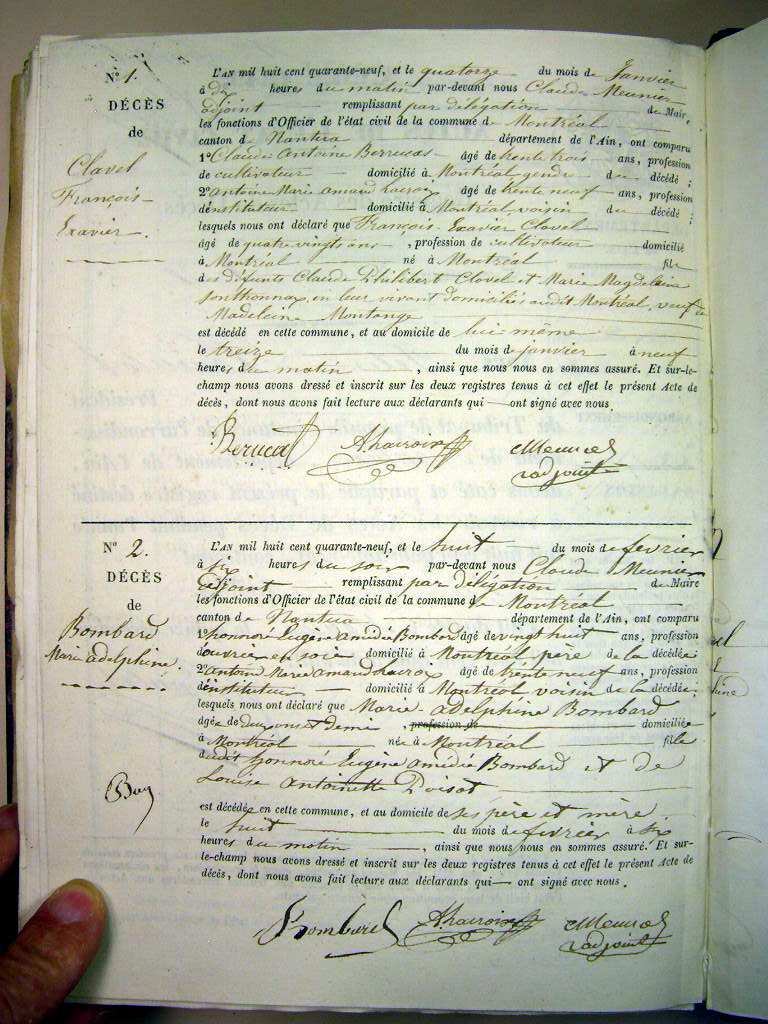 N° 1.
DÉCÈS
de
Clavel
François-
Exavier.
L'AN mil huit cent quarante-neuf, et le quatorze du mois de Janvier
à dix heures du matin par-devant nous Claude Meunier
adjoint remplissant par délégation de Maire
les fonctions d'Officier de l'état civil de la commune de Montréal
canton de Nantua département de l'Ain, ont comparu
1° Claude Antoine Berrucas âgé de trente trois ans, profession
de cultivateur domicilié à Montréal, gendre du décédé ;
2° antoine Marie amand Lacroix âgé de trente neuf ans, profession
d'instituteur domicilié à Montréal, voisin du décédé ;
lesquels nous ont déclaré que François Exavier Clavel
âgé de quatre vingts ans, profession de cultivateur domicilié
à Montréal né à Montréal fils
des défunts Claude Philibert Clavel et Marie Magdeleine
Sonthonnax, en leur vivant domiciliés audit Montréal, veuf de
Madeleine Montange
est décédé en cette commune, et au domicile de lui même
le treize du mois de janvier à neuf
heures du matin, ainsi que nous nous en sommes assuré. Et sur-le-
champ nous avons dressé et inscrit sur les deux registres tenus à cet effet le présent Acte de
décès, dont nous avons fait lecture aux déclarants qui — ont signé avec nous.
Berrucat A. Lacroix Meunier
adjoint
N° 2.
DÉCÈS
de
Bombard
Marie adelphine.
L'AN mil huit cent quarante-neuf, et le huit du mois de fevrier
à six heures du soir par-devant nous Claude Meunier
adjoint remplissant par délégation de Maire
les fonctions d'Officier de l'état civil de la commune de Montréal
canton de Nantua département de l'Ain, ont comparu
1° honnoré Eugène amédie Bombard âgé de vingt huit ans, profession
d'ouvrier en soie domicilié à Montréal père de la décédée ;
2° antoine Marie amand Lacroix âgé de trente neuf ans, profession
d'instituteur domicilié à Montréal voisin de la décédée ;
lesquels nous ont déclaré que Marie adelphine Bombard
agée de deux ans et demi, profession de domiciliée
à Montréal née à Montréal fille
dudit honnoré Eugène amédie Bombard et de
Louise Antoinette Poisat
est décédée en cette commune, et au domicile de ses père et mère
le huit du mois de fevrier à six
heures du matin, ainsi que nous nous en sommes assuré. Et sur-
le-champ nous avons dressé et inscrit sur les deux registres tenus à cet effet le présent Acte de
décès, dont nous avons fait lecture aux déclarants qui — ont signé avec nous.
Bombard A. Lacroix Meunier
adjoint